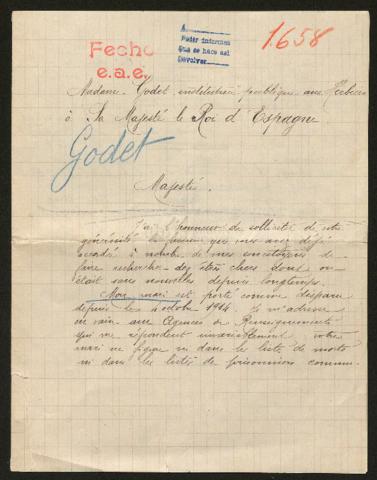 Fecho
e.a.e.
A
Pedir informes
Que se hace así
Devolver
1.658
Madame Godet institutrice publique aux
à Sa Majesté le Roi d'Espagne
Godet
Majesté.
J'ai l'honneur de solliciter de votre
générosité la faveur que vous avez déjà
accordé à nombre de mes concitoyens de
faire rechercher des êtres chers dont on
était sans nouvelles depuis longtemps.
Mon mari est porté comme disparu
depuis le 4 octobre 1914. Je m'adresse
en vain aux Agences de Renseignements
qui me répondent invariablement votre
mari ne figure ni dans les liste de morts
ni dans les listes de prisonniers commu-